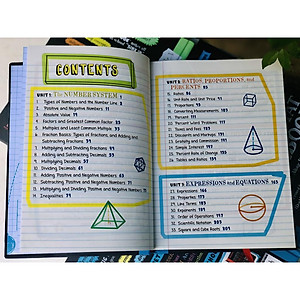 CONTENTS
UNIT 1: The NUMBER SYSTEM 1
1. Types of Numbers and the Number Line 2
2. Positive and Negative Numbers 11
3. Absolute Value 19
4. Factors and Greatest Common Factor 23
5. Multiples and Least Common Multiple 29
6. Fraction Basics: Types of Fractions, and Adding and
Subtracting Fractions
7. Multiplying and Dividing Fractions
8. Adding and Subtracting Decimals
9. Multiplying Decimals
10. Dividing Decimals 61
11. Adding Positive and Negative Numbers
12. Subtracting Positive and Negative Numbers 71
13. Multiplying and Dividing Positive and Negative Numbers
14. Inequalities 79
UNIT 2: RATIOS, PROPORTIONS, and
PERCENTS 85
15. Ratios 86
16. Unit Rate and Unit Price 91
17. Proportions 95
18. Converting Measurements 103
19. Percent 111
20. Percent Word Problems
21. Taxes and Fees
22. Discounts and Markups
23. Gratuity and Commission
24. Simple Interest
25. Percent Rate of Change
26. Tables and Ratios
UNIT 3: EXPRESSIONS and EQUATIONS 163
27. Expressions 164
28. Properties 173
29. Like Terms 183
30. Exponents 189
31. Order of Operations 197
32. Scientific Notation 203
33. Square and Cube Roots 209